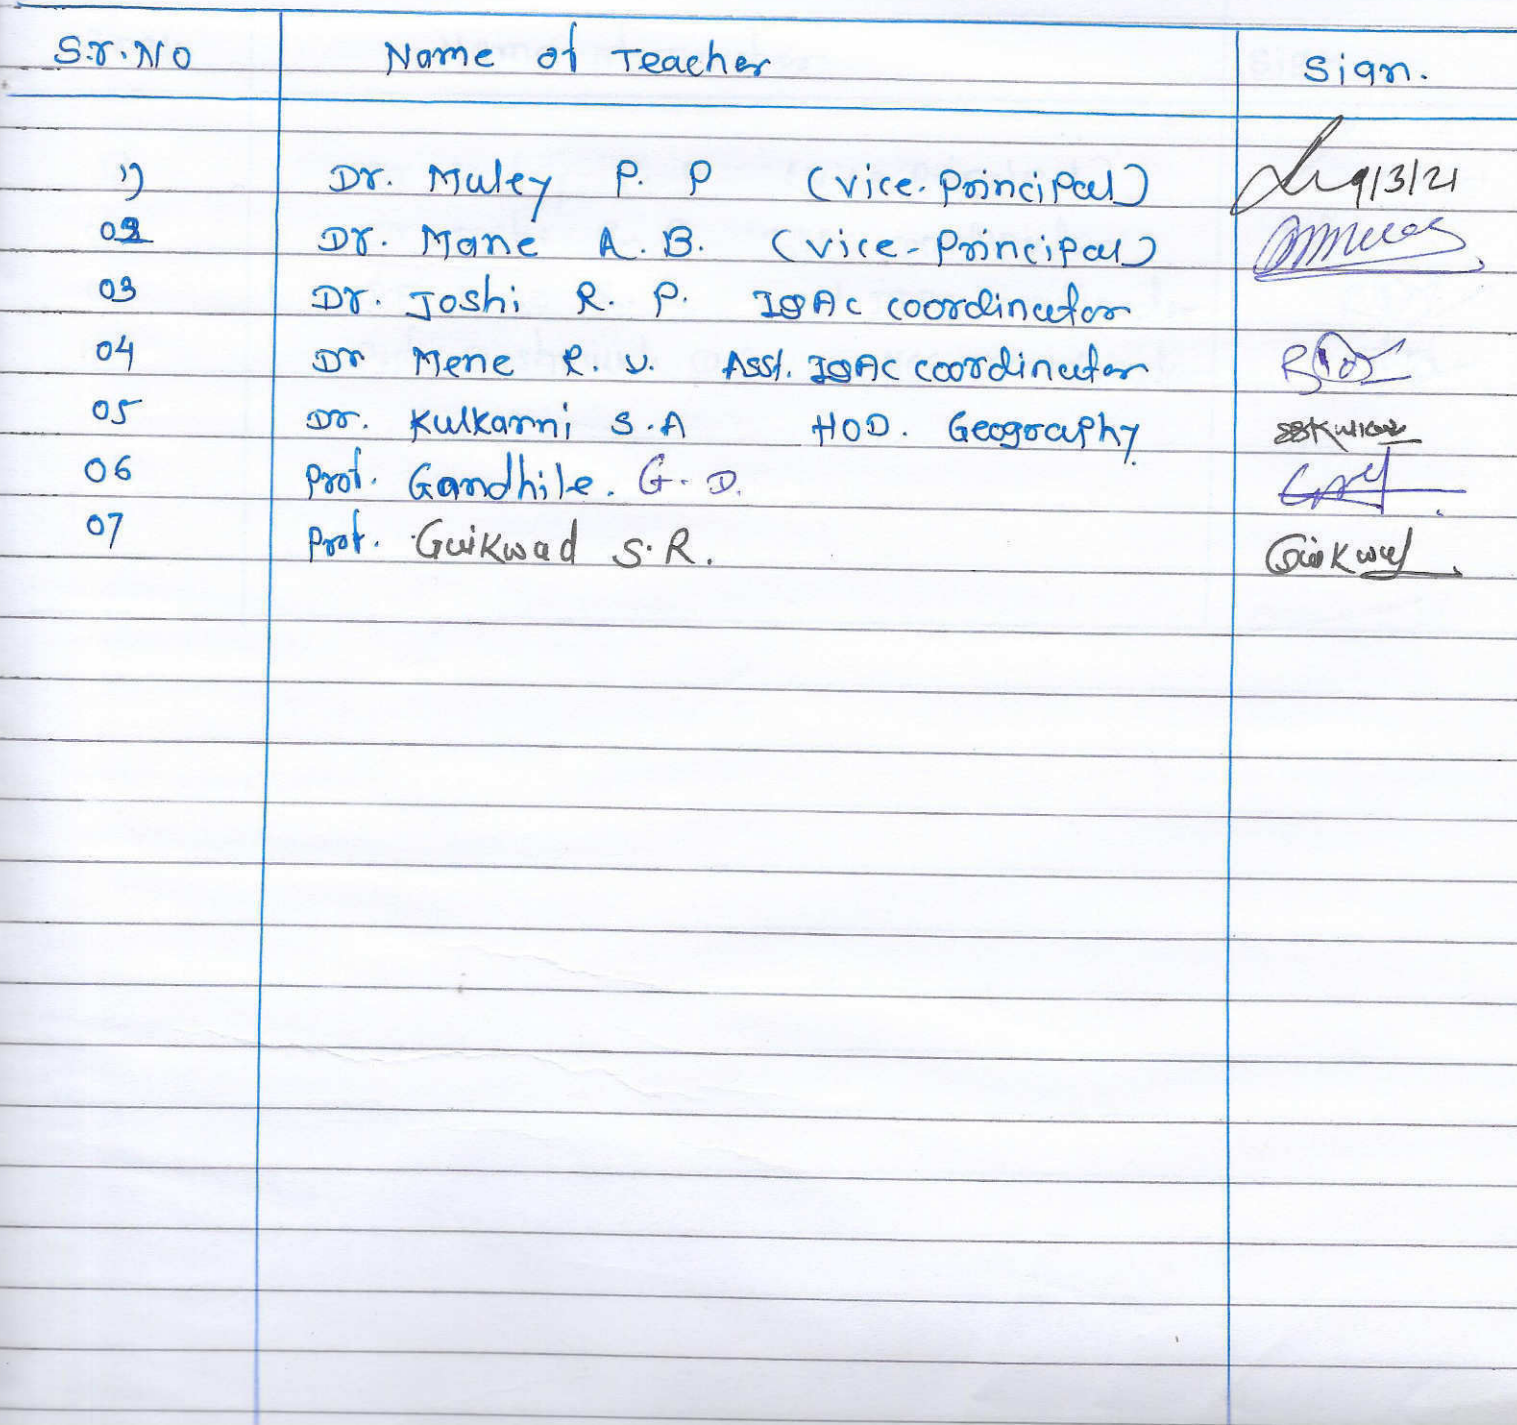 Sr.No Name of Teacher Sign.
1) Dr. Muley P. P (Vice-Principal) 9/3/21
02 Dr. Mane A. B. (Vice-Principal)
03 Dr. Joshi R. P. IQAC coordinator
04 Dr Mene R. V. Asst. IQAC coordinator
05 Dr. Kulkarni S.A HOD. Geography
06 Prof. Gandhile. G. D.
07 Prof. Gaikwad S.R. Gaikwad